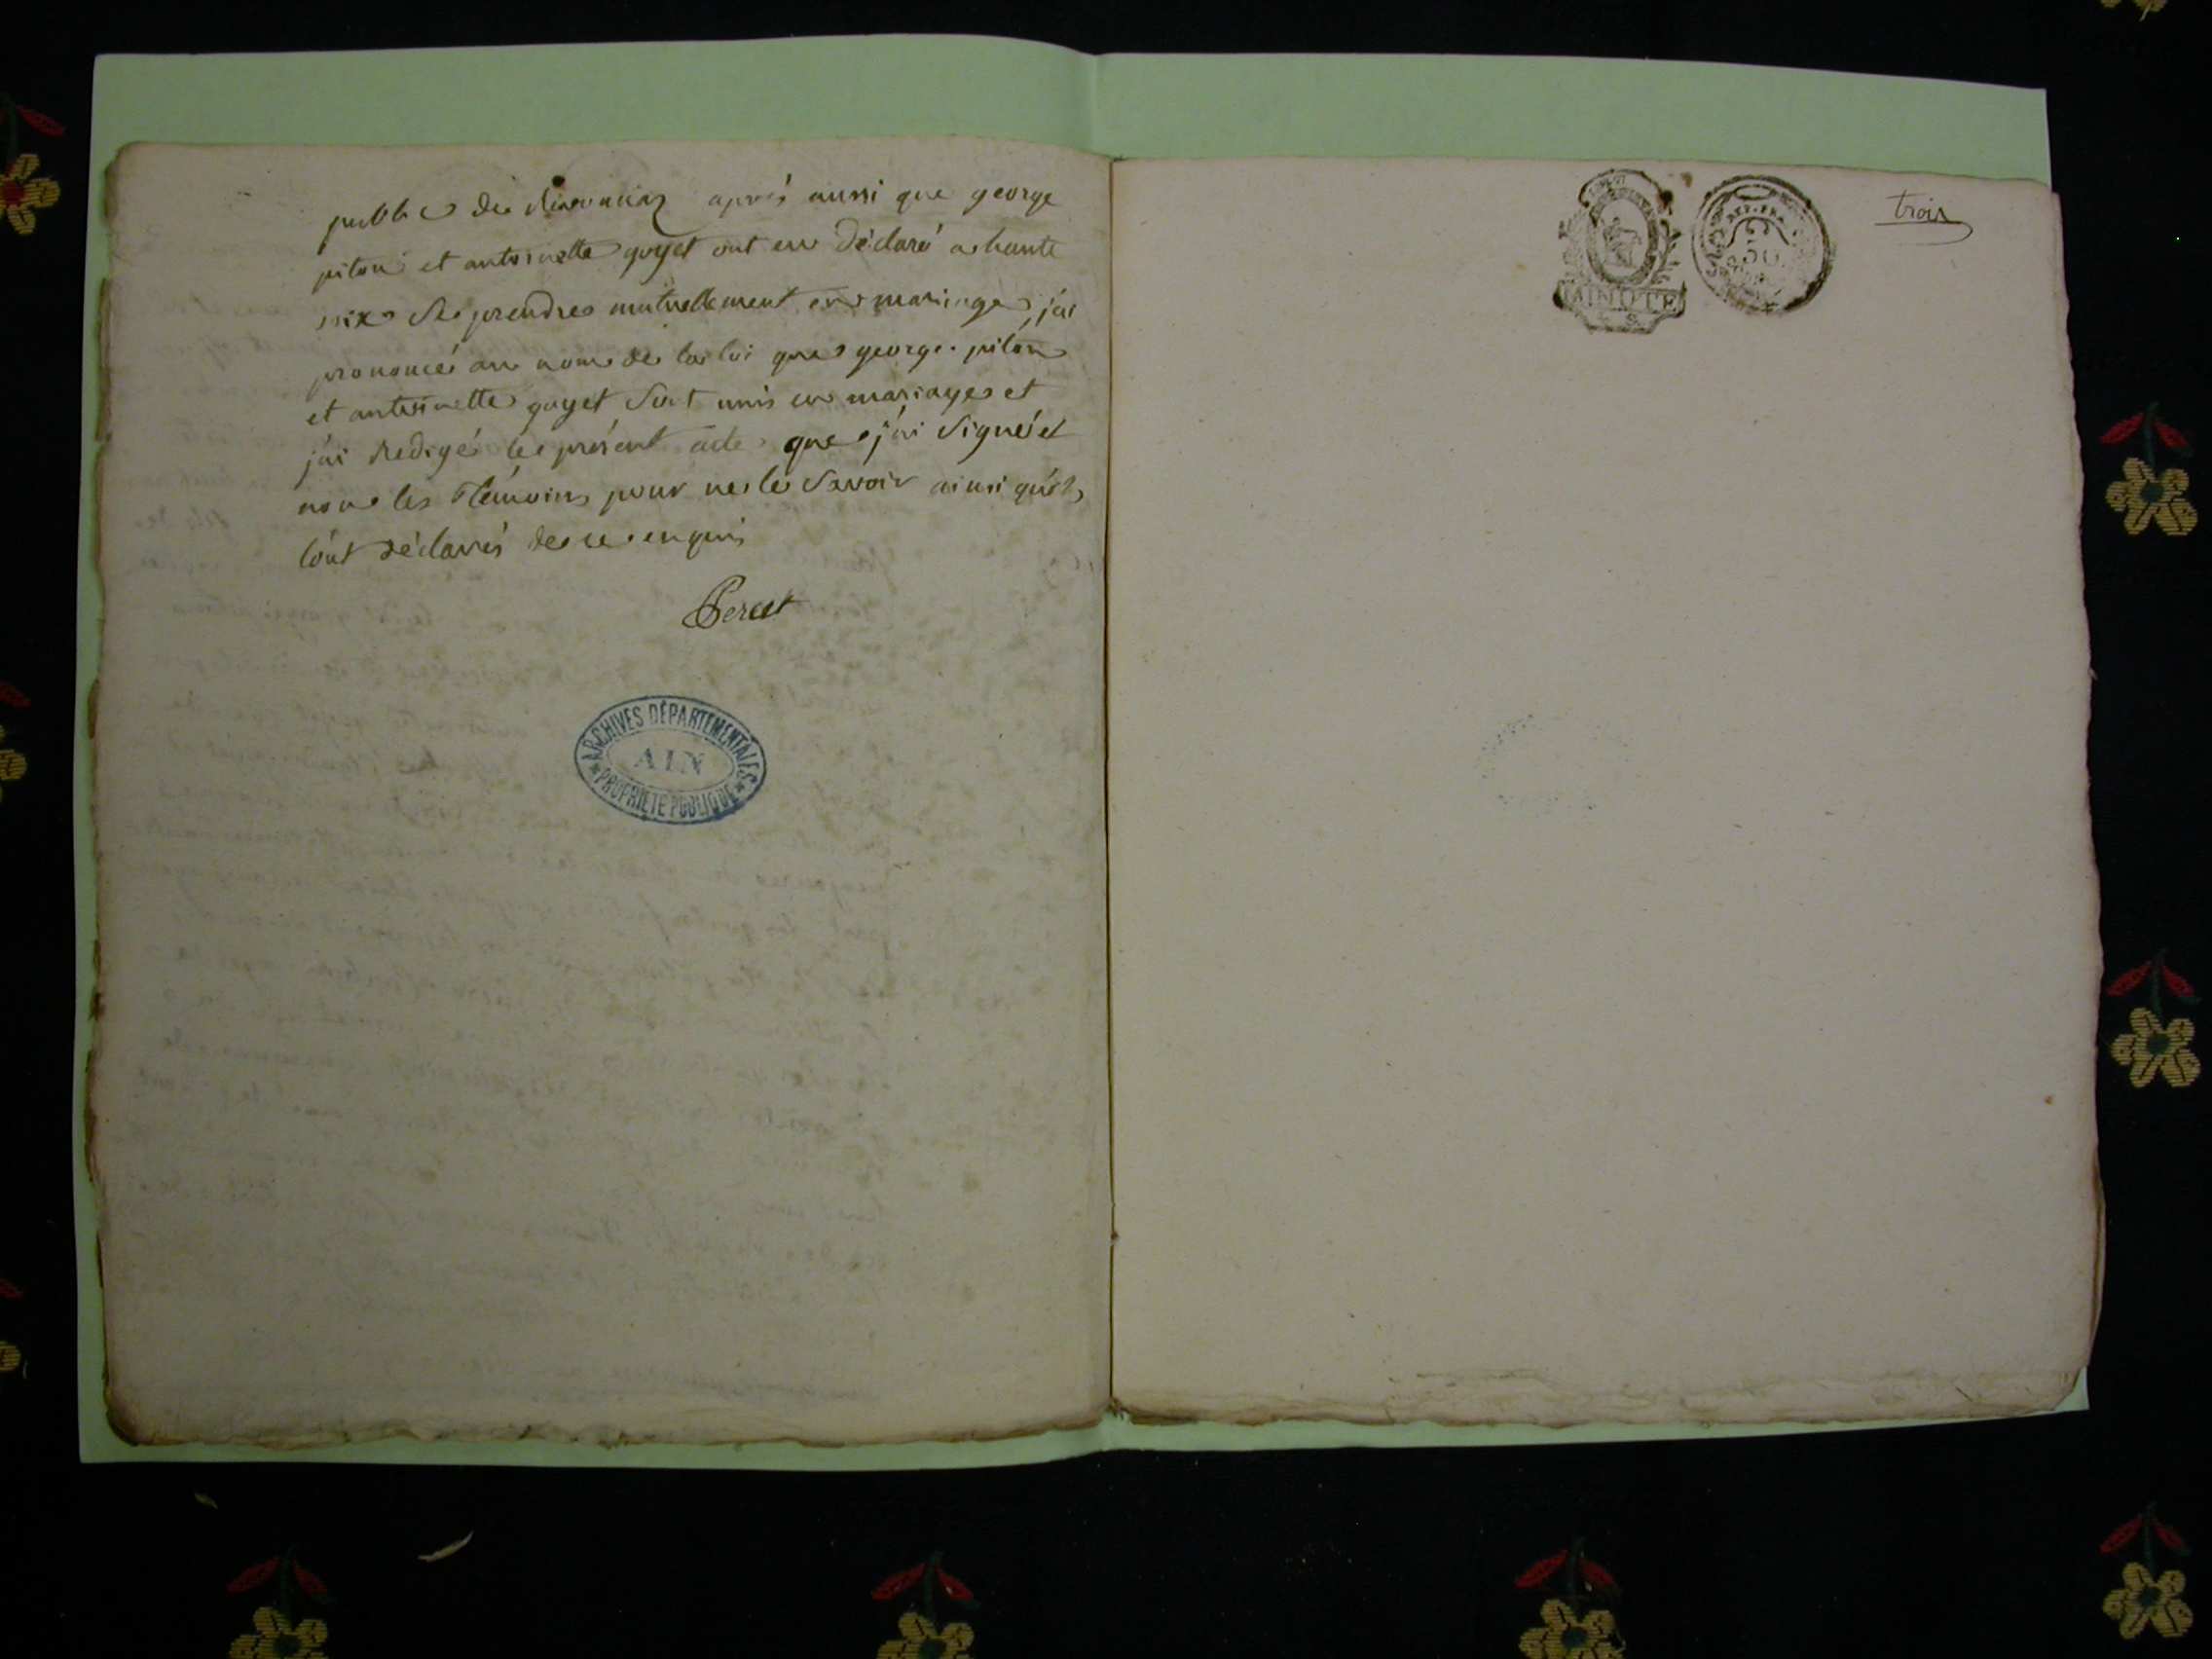 public de après aussi que george
piton et antoinette goyet ont en déclaré a haute
voix se prendre mutuellement en mariage, j'ai
prononcé au nom de la loi que george piton
et antoinette goyet sont unis en mariage et
j'ai redigé le présent acte que j'ai signé et
non les témoins pour ne le savoir ainsi qu'ils
l'ont déclarés de ce enquis
Percet
ARCHIVES DÉPARTEMENTALES
AIN
PROPRIÉTÉ PUBLIQUE
MINUTE
50
trois